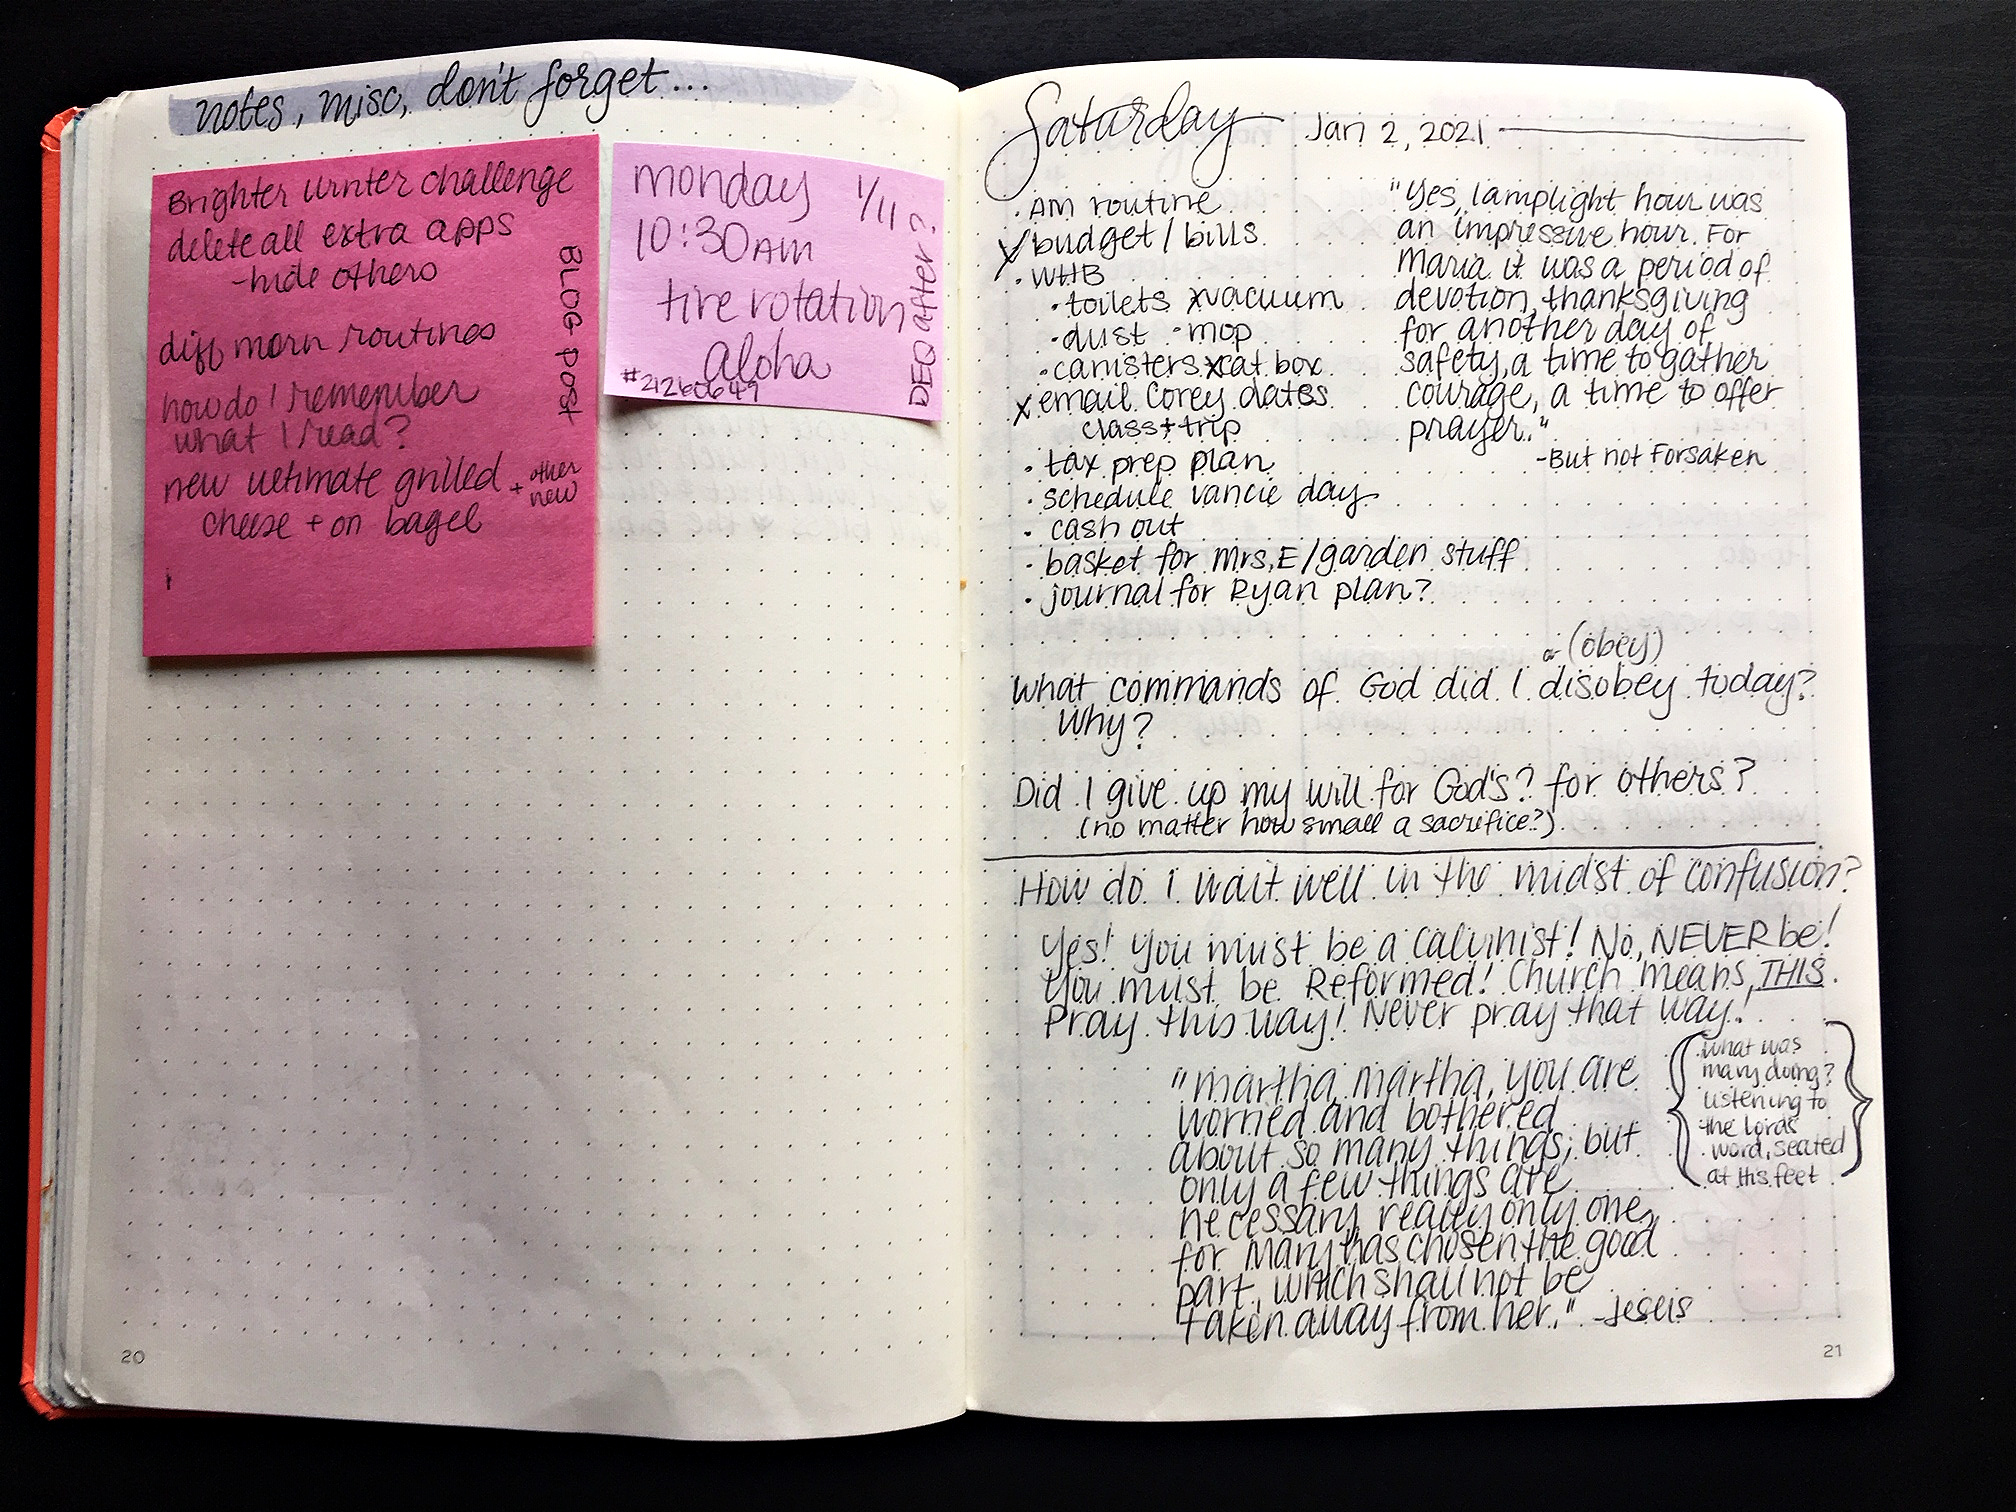 notes, misc, don't forget...
Brighter winter challenge
delete all extra apps
-hide others
diff morn routines
how do I remember
what I read?
new ultimate grilled + other new
cheese + on bagel
BLOG post
monday 1/11
10:30AM
tire rotation
aloha
#21260649
DEQ after?
20
Saturday Jan 2, 2021
· AM routine
x budget / bills
· WHB
· toilets x vacuum
· dust · mop
· canisters x cat box
x email Corey dates
class + trip
· tax prep plan
· schedule vancie day
· cash out
· basket for Mrs. E/garden stuff
· journal for Ryan plan?
"Yes, lamplight hour was
an impressive hour. For
Maria it was a period of
devotion, thanksgiving
for another day of
safety, a time to gather
courage, a time to offer
prayer."
-But not Forsaken
or (obey)
What commands of God did I disobey today?
Why?
Did I give up my will for God's? for others?
(no matter how small a sacrifice?)
How do I wait well in the midst of confusion?
Yes! You must be a Calvinist! No, NEVER be!
You must be Reformed! Church means THIS.
Pray this way! Never pray that way!
"Martha, Martha, you are
worried and bothered
about so many things; but
only a few things are
necessary, really only one,
for Mary has chosen the good
part, which shall not be
taken away from her." -Jesus
what was
mary doing?
listening to
the lords
word, seated
at His feet
21